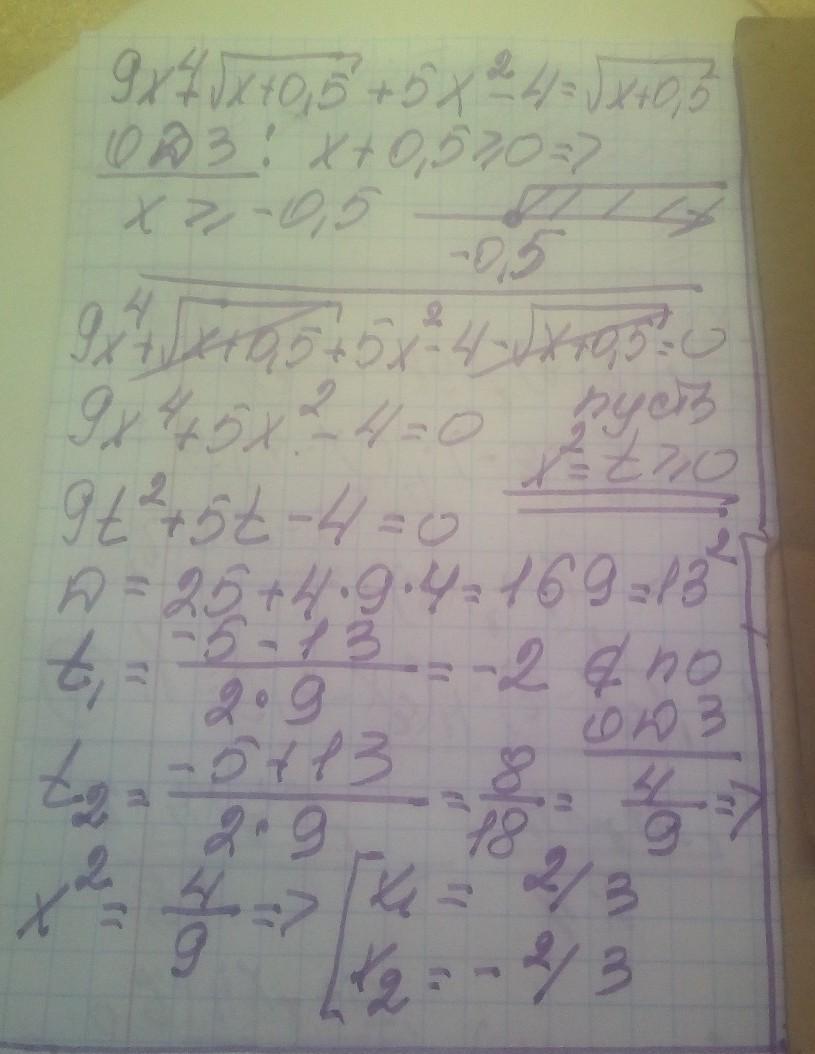 9x⁴+√x+0,5 + 5x²-4 = √x+0,5
ОДЗ: x+0,5⩾0 =>
x ⩾ -0,5
-0,5
9x⁴+√x+0,5+5x²-4-√x+0,5=0
9x⁴+5x²-4=0 пусть
x²=t⩾0
9t²+5t-4=0
D = 25+4·9·4=169=13²
t₁ = (-5-13)/(2·9) = -2 ∉ по
ОДЗ
t₂ = (-5+13)/(2·9) = 8/18 = 4/9 =>
x² = 4/9 => [x₁ = 2/3
x₂ = - 2/3